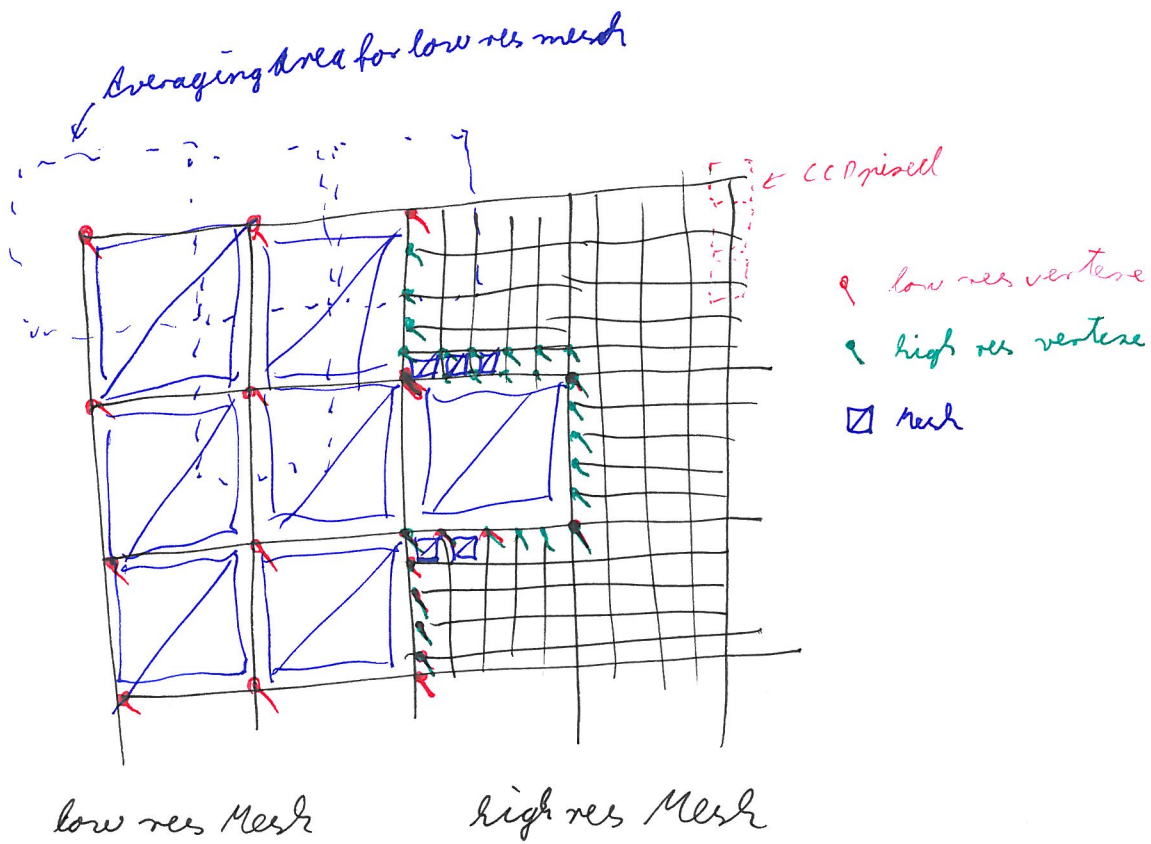 Averaging Area for low res mesh
CCD pixel
low res vertexe
high res vertexe
Mesh
low res Mesh
high res Mesh